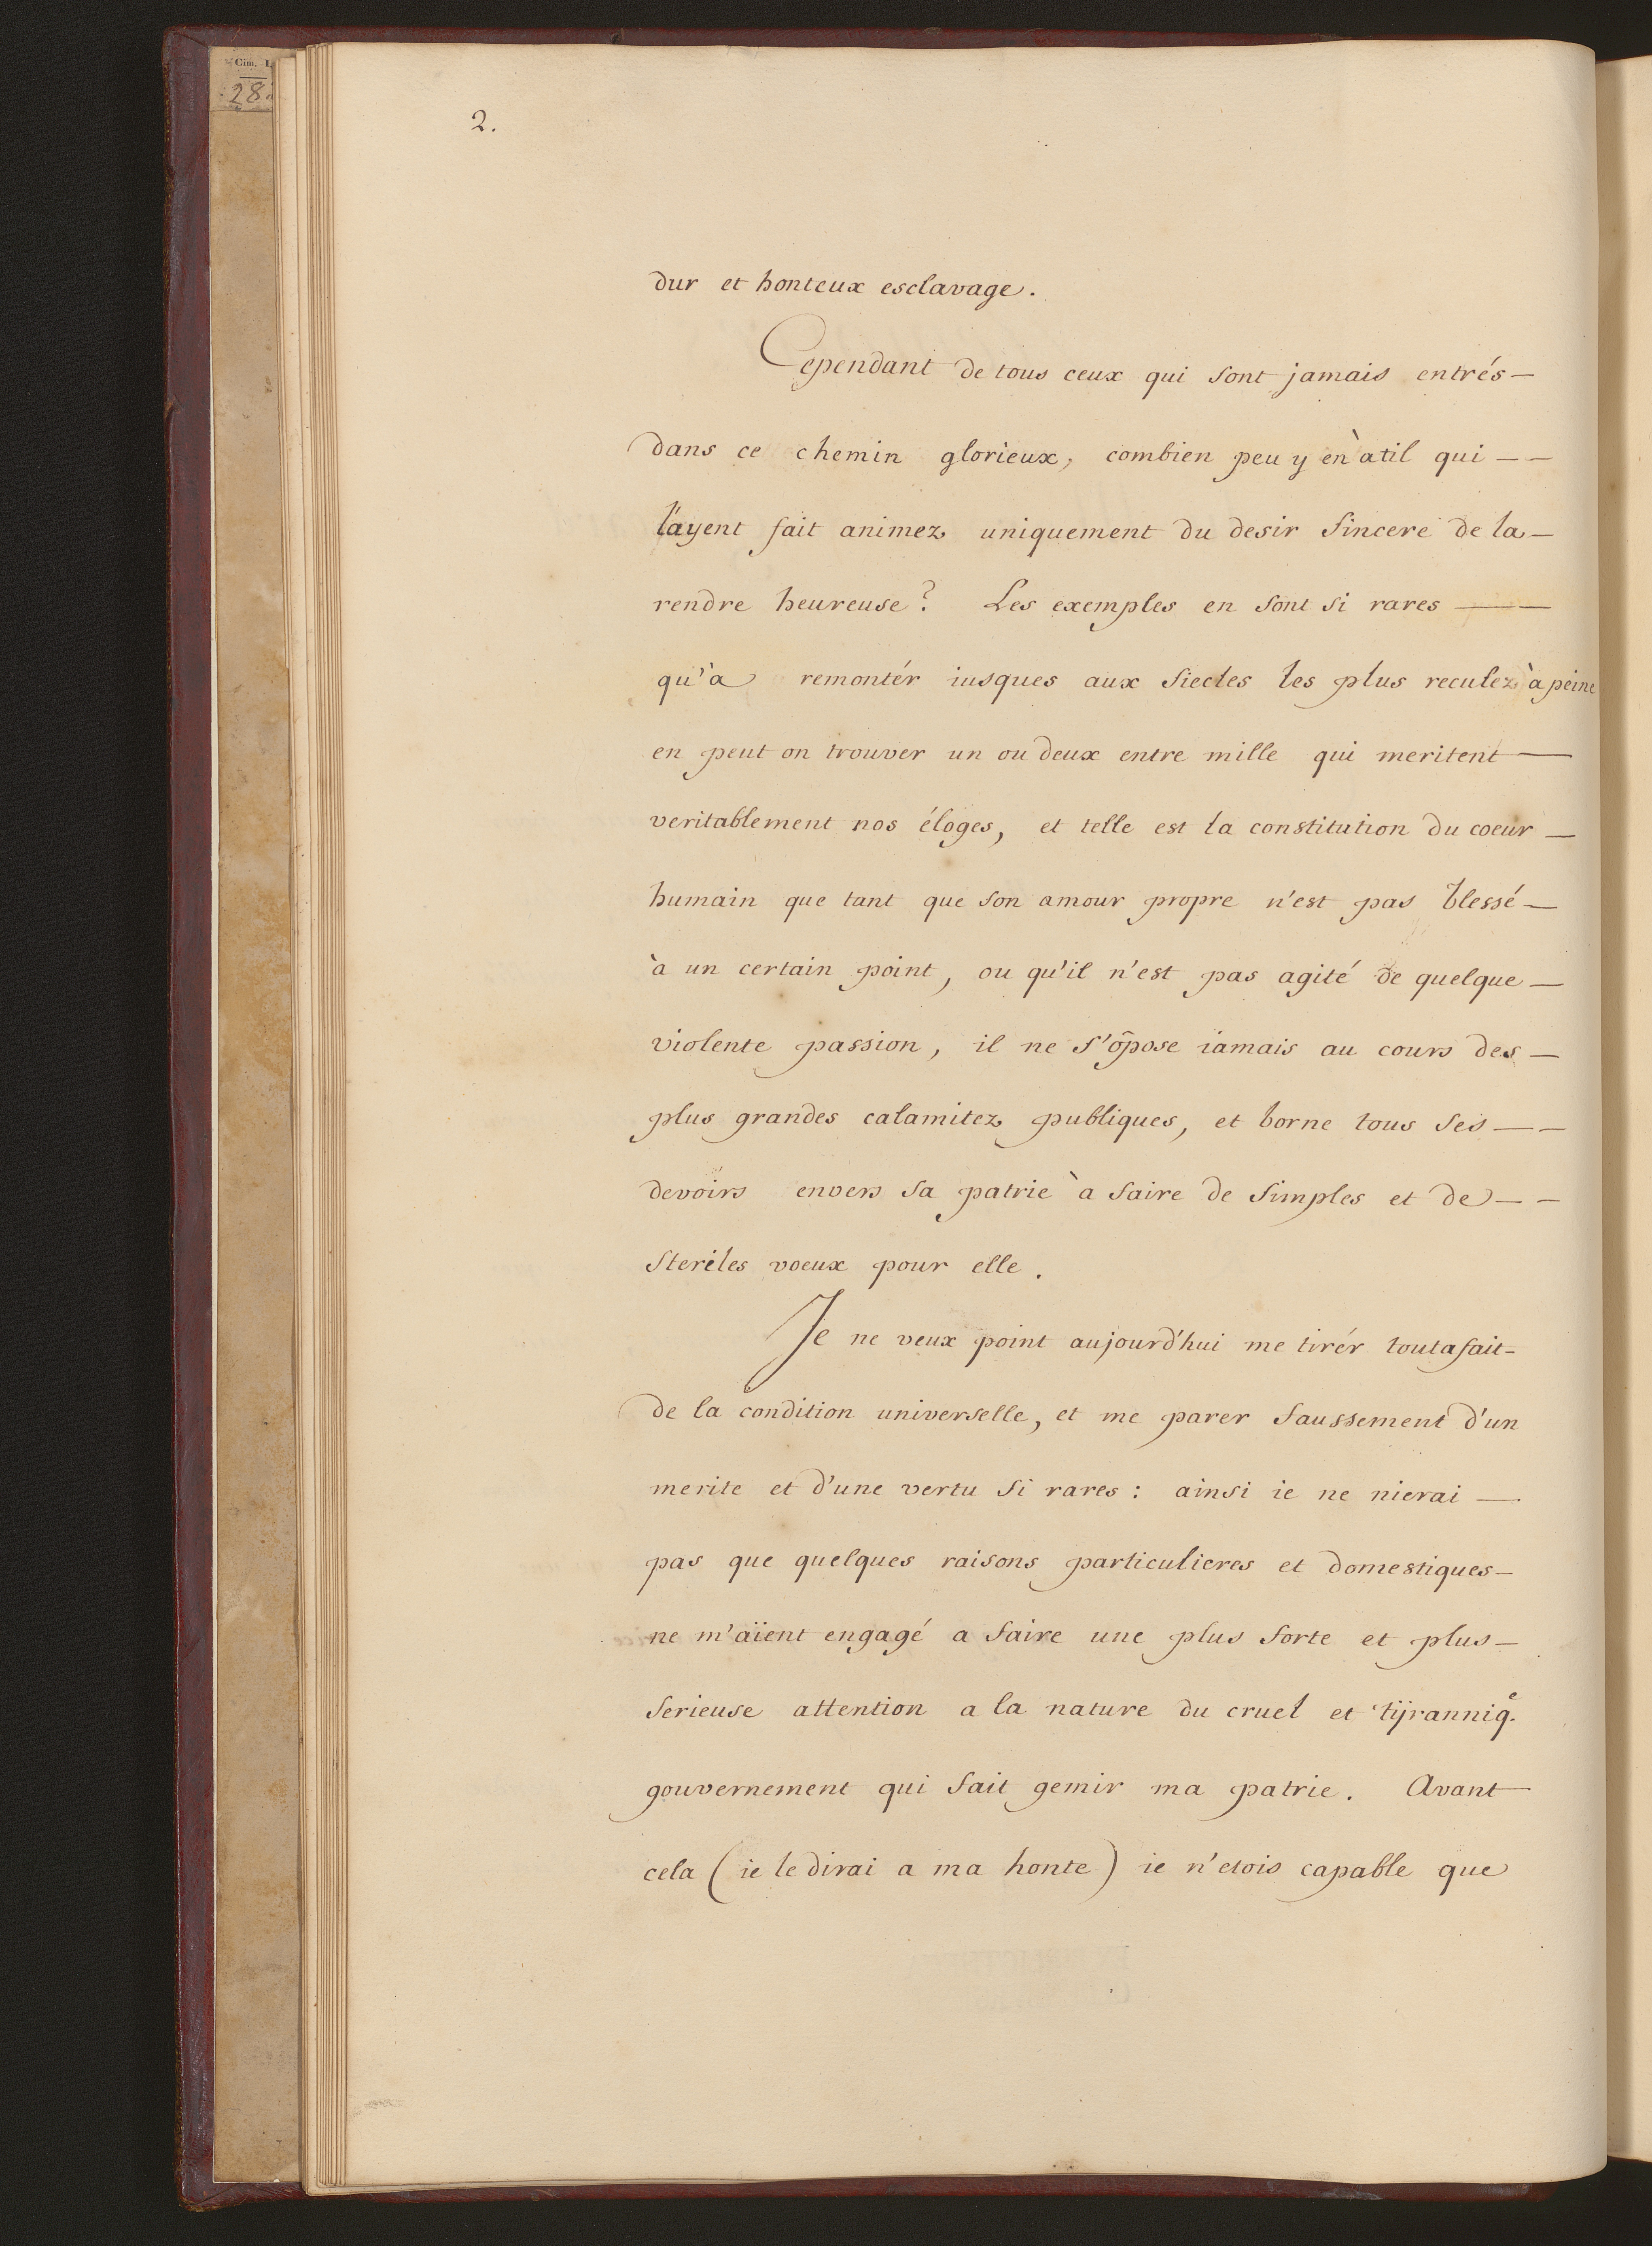 Cim. I.
28
2.
dur et honteux esclavage.
Cependant de tous ceux qui sont jamais entrés—
dans ce chemin glorieux, combien peu y en àtil qui — —
l'ayent fait animez uniquement du desir sincere de la —
rendre heureuse? Les exemples en sont si rares — —
qu'a remontér iusques aux siecles les plus reculez à peine
en peut on trouver un ou deux entre mille qui meritent —
veritablement nos éloges, et telle est la constitution du coeur —
humain que tant que son amour propre n'est pas blessé —
à un certain point, ou qu'il n'est pas agité de quelque —
violente passion, il ne s'op̃ose iamais au cours des —
plus grandes calamitez publiques, et borne tous ses — —
devoirs envers sa patrie à faire de simples et de — —
steriles voeux pour elle.
Je ne veux point aujourd'hui me tirér toutafait=
de la condition universelle, et me parer faussement d'un
merite et d'une vertu si rares: ainsi ie ne nierai —
pas que quelques raisons particulieres et domestiques—
ne m'aïent engagé a faire une plus forte et plus —
serieuse attention a la nature du cruel et tÿranniq.e
gouvernement qui fait gemir ma patrie. Avant —
cela (ie le dirai a ma honte) ie n'etois capable que